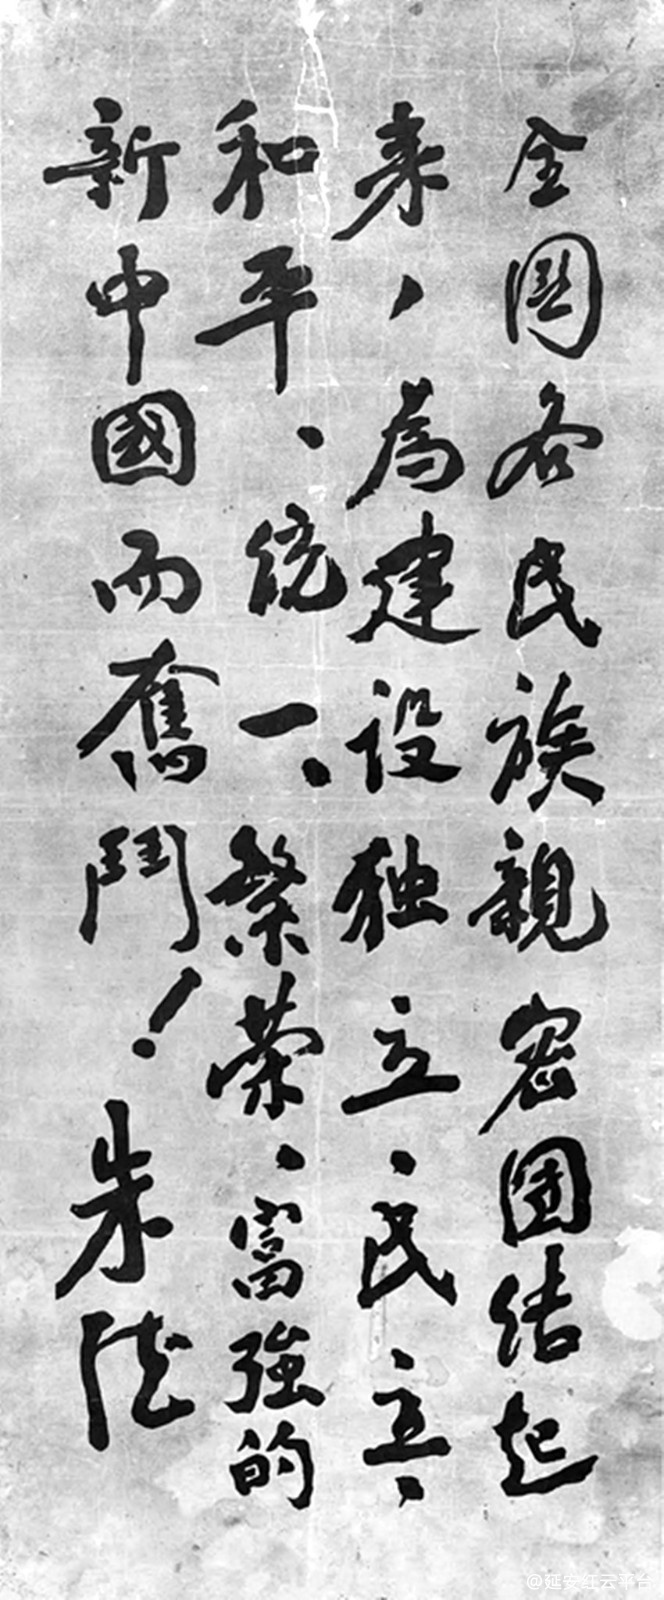 全國各民族親密团结起
来，為建设独立、民主、
和平、统一、繁荣、富強的
新中國而奮鬥！朱德
@延安红云平台